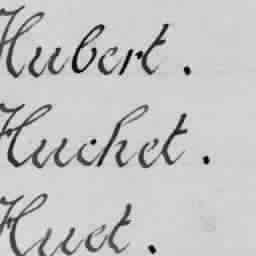 Hubert.
Huchet.
Huet.